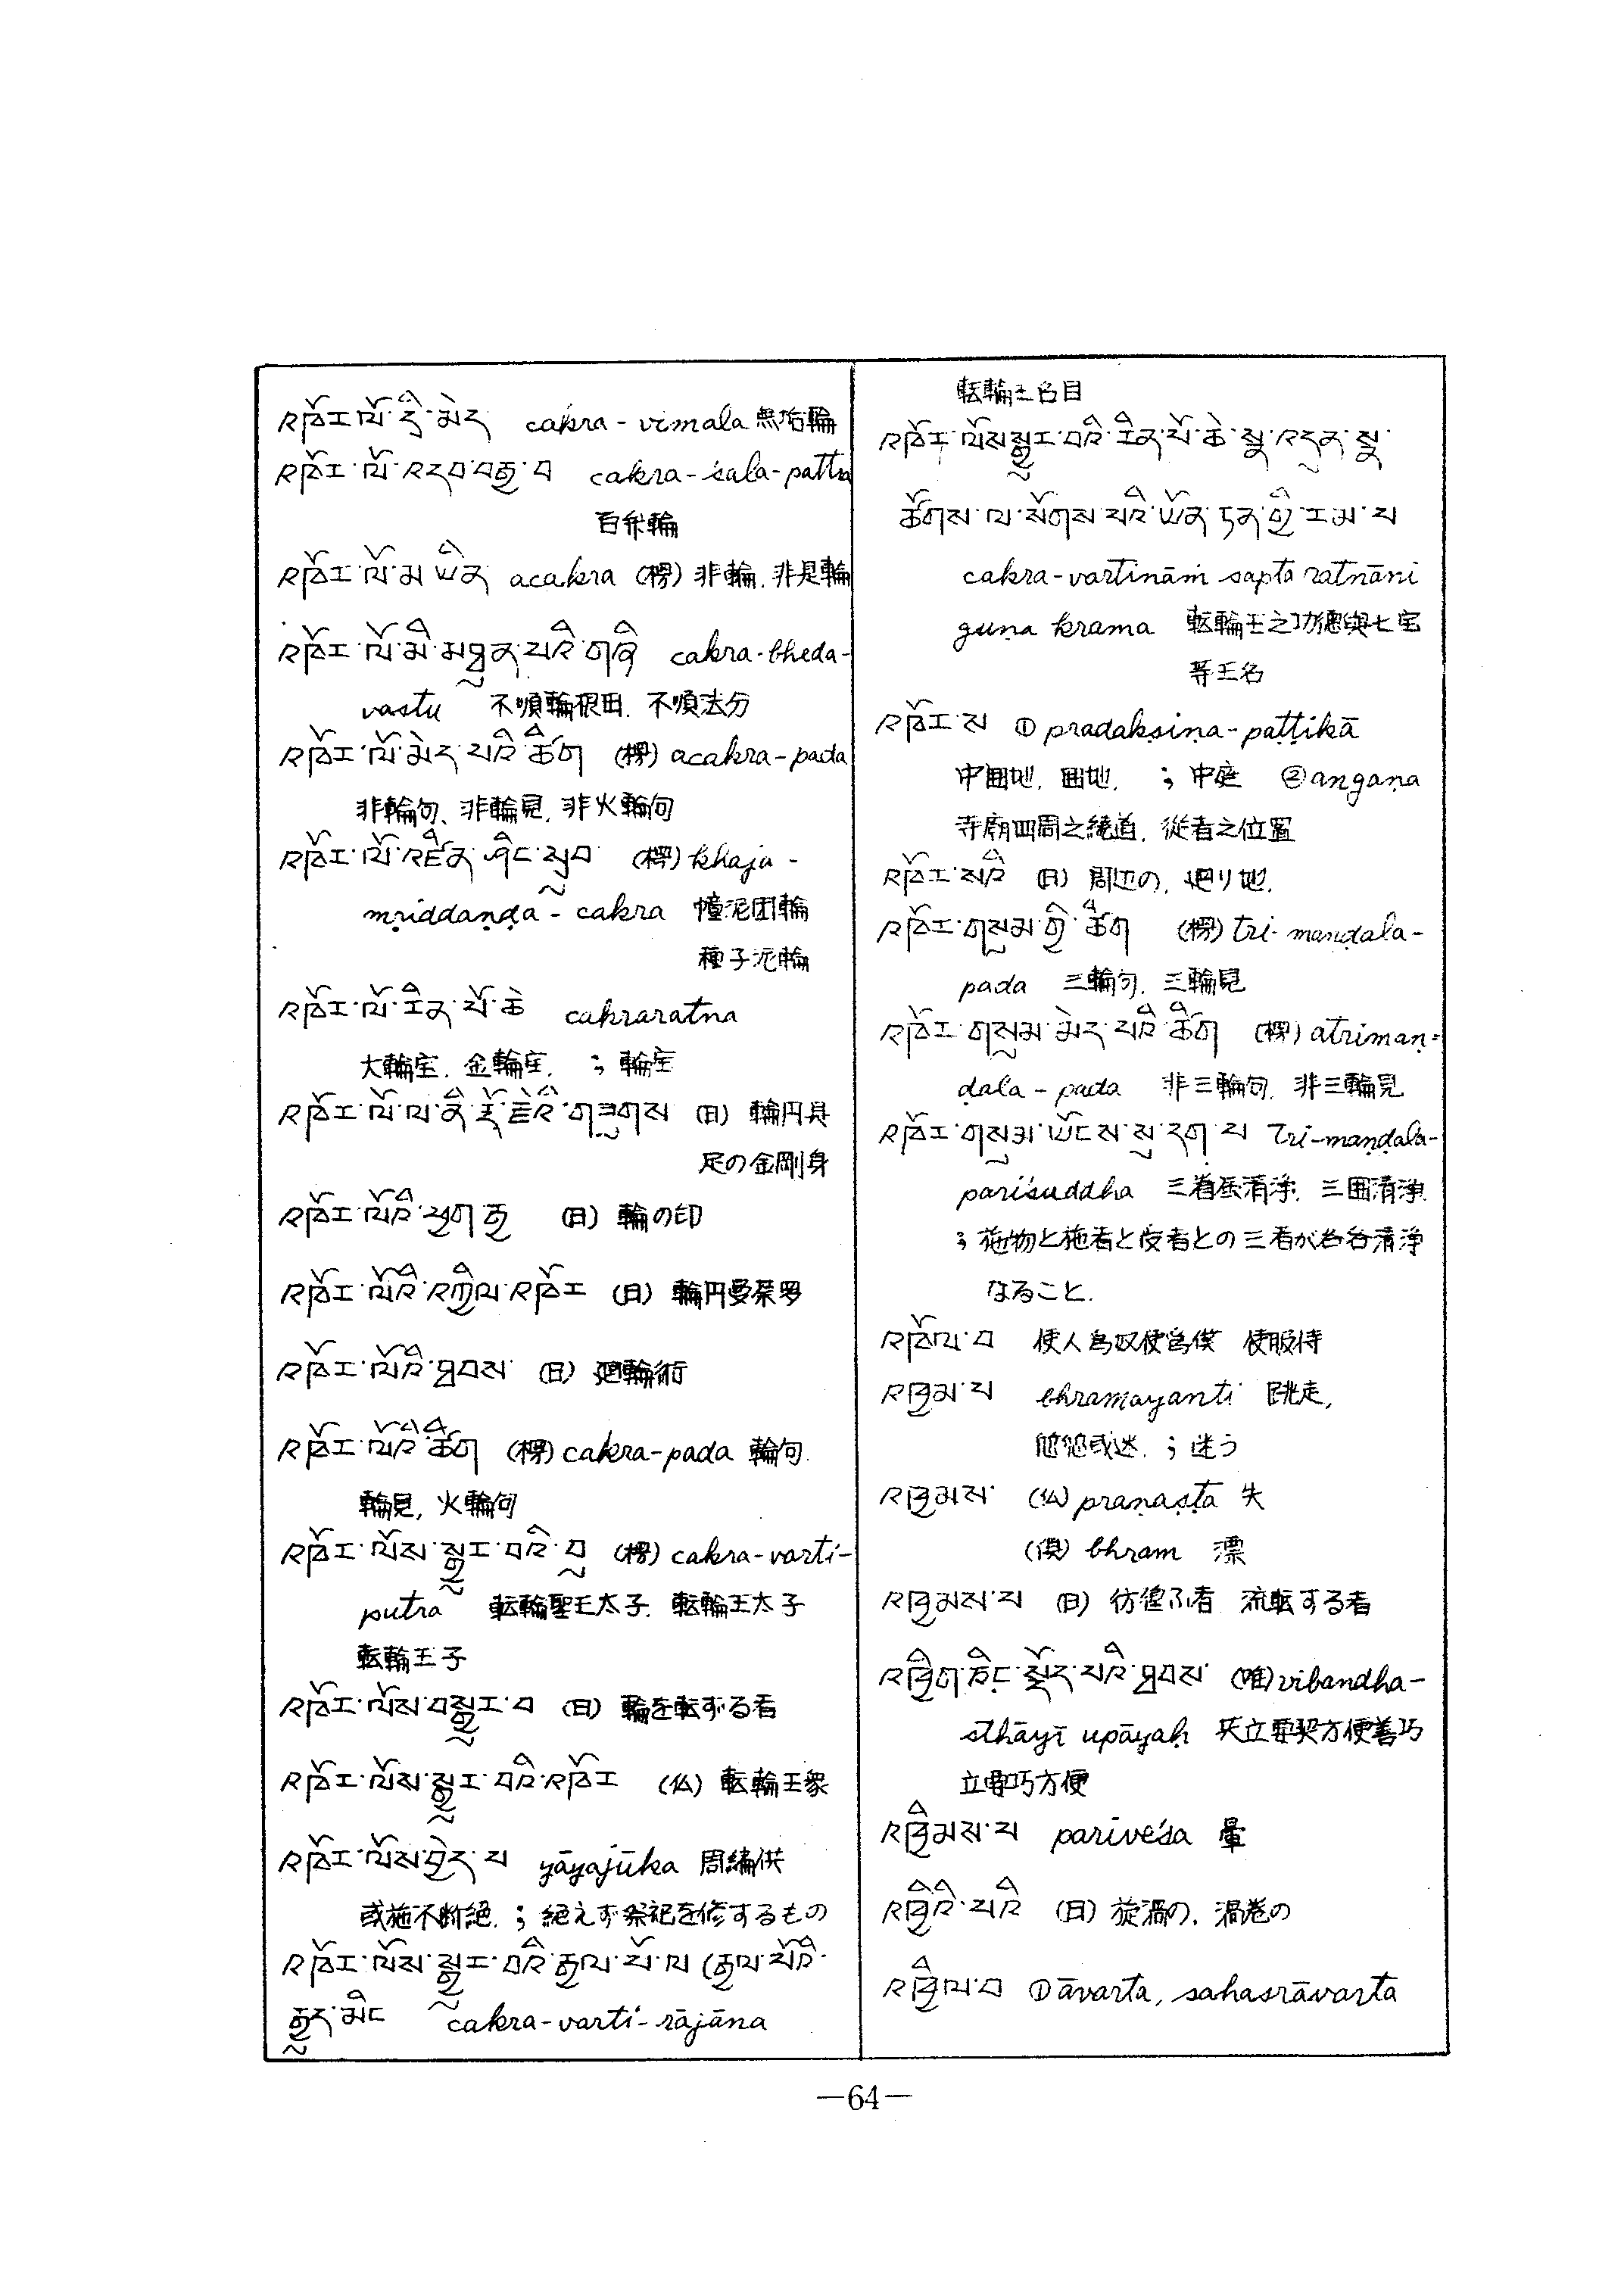 འཁོར་ལོ་དྲི་མེད cakra-vimala 無垢輪
འཁོར་ལོ་འདབ་བརྒྱ་བ cakra-śala-pattra
百弁輪
འཁོར་ལོ་མ་ཡིན acakra (楞) 非輪. 非是輪
འཁོར་ལོ་མི་མཐུན་པའི་གཞི cakra-bheda-
vastu 不順輪根田. 不順法分
འཁོར་ལོ་མེད་པའི་ཚིག (楞) acakra-pada
非輪句、非輪見, 非火輪句
འཁོར་ལོ་ (楞) khaja-
mṛiddaṇḍa-cakra 幢泥団輪
種子泥輪
འཁོར་ལོ་རིན་པོ་ཆེ cakraratna
大輪宝. 金輪宝. ; 輪宝
འཁོར་ལོ་ལ་ནི་རྡོ་རྗེའི་གཟུགས (日) 輪円具
足の金剛身
འཁོར་ལོའི་ཕྱག་རྒྱ (日) 輪の印
འཁོར་ལོའི་དཀྱིལ་འཁོར (日) 輪円曼荼羅
འཁོར་ལོའི་ཐབས (日) 廻輪術
འཁོར་ལོའི་ཚིག (楞) cakra-pada 輪句.
輪見, 火輪句
འཁོར་ལོས་སྒྱུར་བའི་བུ (楞) cakra-varti-
putra 転輪聖王太子. 転輪王太子
転輪王子
འཁོར་ལོས་བསྒྱུར་བ (日) 輪を転ずる者
འཁོར་ལོས་སྒྱུར་བའི་འཁོར (仏) 転輪王衆
འཁོར་ལོས་བྱེད་པ yāyajūka 周編供
或施不断絶. ; 絶えず祭祀を修するもの
འཁོར་ལོས་སྒྱུར་བའི་རྒྱལ་པོ་ལ (རྒྱལ་པོའི་
རྒྱུད་མིང cakra-varti-rājāna
転輪王名目
འཁོར་ལོས་སྒྱུར་བའི་རིན་པོ་ཆེ་སྣ་བདུན་སྣ་
ཚོགས་ལ་སོགས་པའི་ཡོན་ཏན་གྱི་རིམ་པ
cakra-vartināṁ sapta ratnāni
guṇa krama 転輪王之功徳與七宝
等王名
འཁོར་ས ① pradakṣiṇa-paṭṭikā
中囲地. 囲地. ; 中庭 ② angaṇa
寺廟四周之繞道. 従者之位置
འཁོར་སའི (日) 周辺の, 廻り地.
འཁོར་གསུམ་གྱི་ཚིག (楞) tri-maṇḍala-
pada 三輪句. 三輪見
འཁོར་གསུམ་མེད་པའི་ཚིག (楞) atrimaṇ-
ḍala-pada 非三輪句. 非三輪見
འཁོར་གསུམ་ཡོངས་སུ་དག་པ tri-maṇḍala-
pariśuddha 清浄. 三囲清浄.
; 施物と施者と受者との三者が各各清浄
なること.
འཁོལ་བ 使人為奴使為僕 使服侍
འཁྱམ་པ bhramayanti 跳走,
或迷. ; 迷う
འཁྱམས་ (仏) praṇaṣṭa 失
bhram 漂
འཁྱམས་པ (日) 彷徨ふ者 流転する者
vibandha-
sthāyī upāyaḥ 方便善巧
立要巧方便
འཁྱིམས་པ pariveśa 暈
འཁྱིའི་པའི (日) 旋渦の, 渦巻の
འཁྱིལ་བ ① āvarta, sahasrāvarta
—64—